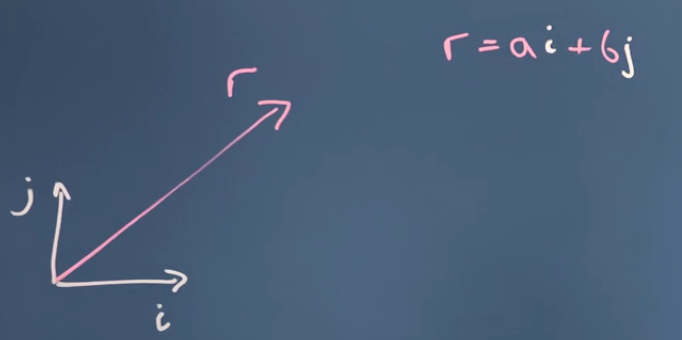 r = ai + bj
r
j
i